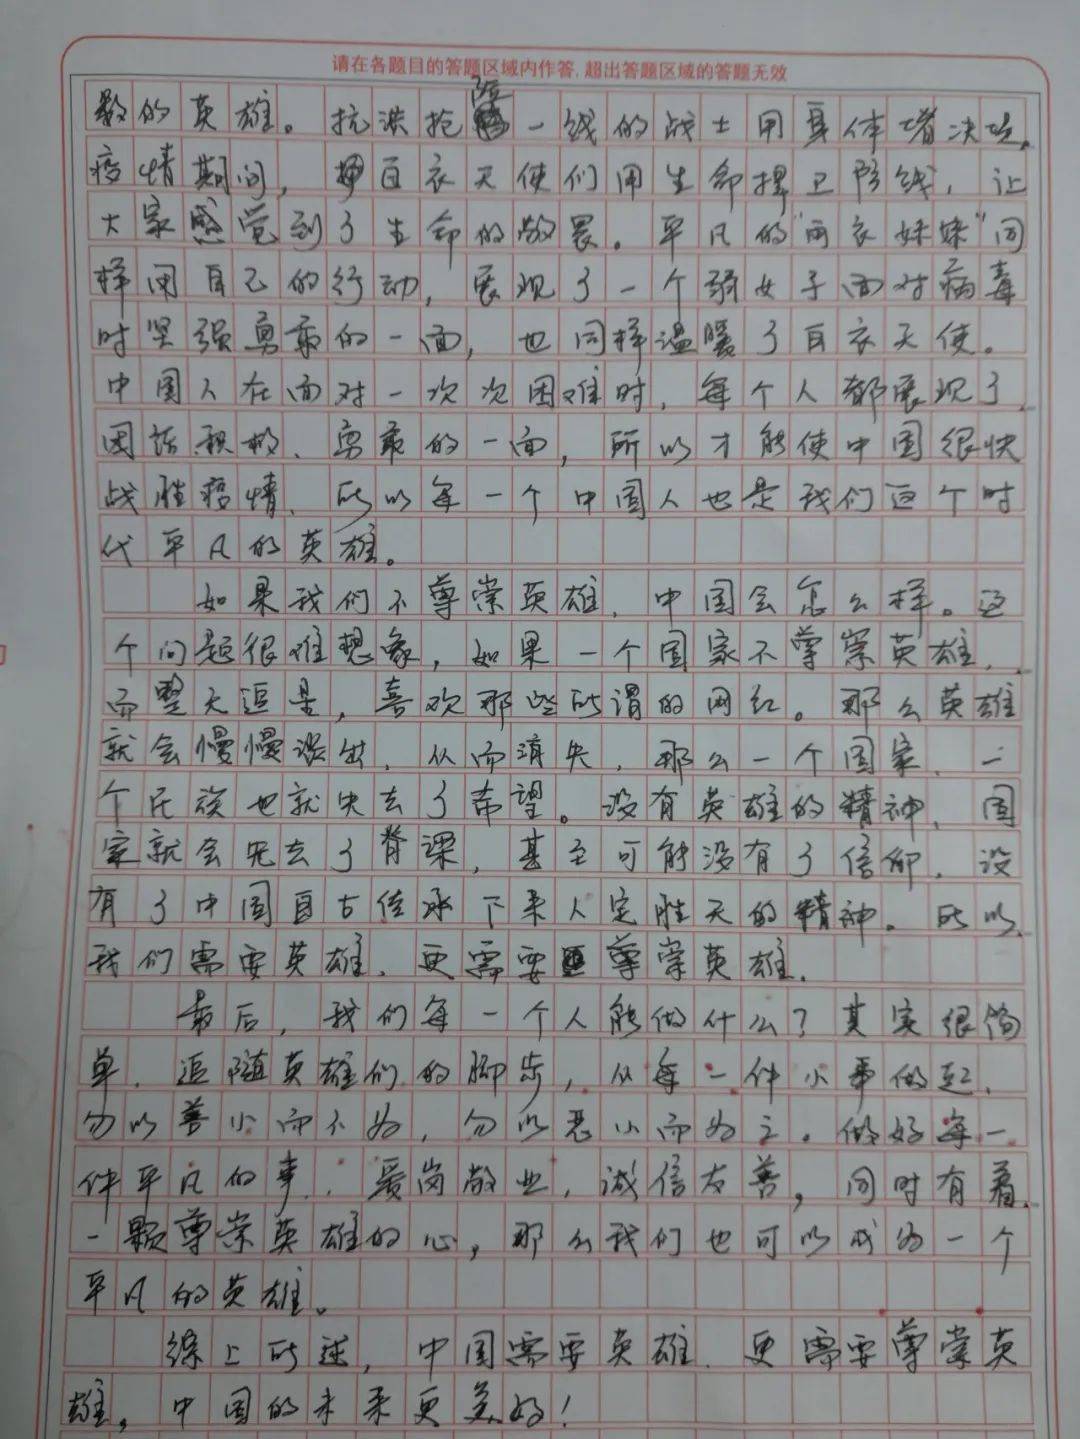 请在各题目的答题区域内作答,超出答题区域的答题无效
数的英雄。抗洪抢险一线的战士用身体堵决口,
疫情期间,白衣天使们用生命捍卫防线,让
大家感觉到了生命的敬畏。平凡的"雨衣妹妹"同
样用自己的行动,展现了一个弱女子面对病毒
时坚强勇敢的一面,也同样温暖了白衣天使。
中国人在面对一次次困难时,每个人都展现了
团结积极、勇敢的一面,所以才能使中国很快
战胜疫情、所以每一个中国人也是我们这个时
代平凡的英雄。
如果我们不尊崇英雄,中国会怎么样。这
个问题很难想象,如果一个国家不尊崇英雄,
而整天追星,喜欢那些所谓的网红。那么英雄
就会慢慢淡出,从而消失,那么一个国家、一
个民族也就失去了希望。没有英雄的精神,国
家就会失去了脊梁,甚至可能没有了信仰,没
有了中国自古传承下来人定胜天的精神。所以,
我们需要英雄,更需要尊崇英雄.
最后,我们每一个人能做什么?其实很简
单,追随英雄们的脚步,从每一件小事做起,
勿以善小而不为,勿以恶小而为之。做好每一
件平凡的事,爱岗敬业,诚信友善,同时有着
一颗尊崇英雄的心,那么我们也可以成为一个
平凡的英雄。
综上所述,中国需要英雄,更需要尊崇英
雄,中国的未来更美好!